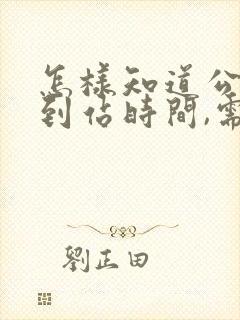 怎樣知道公
到佔時間,需
劉正田